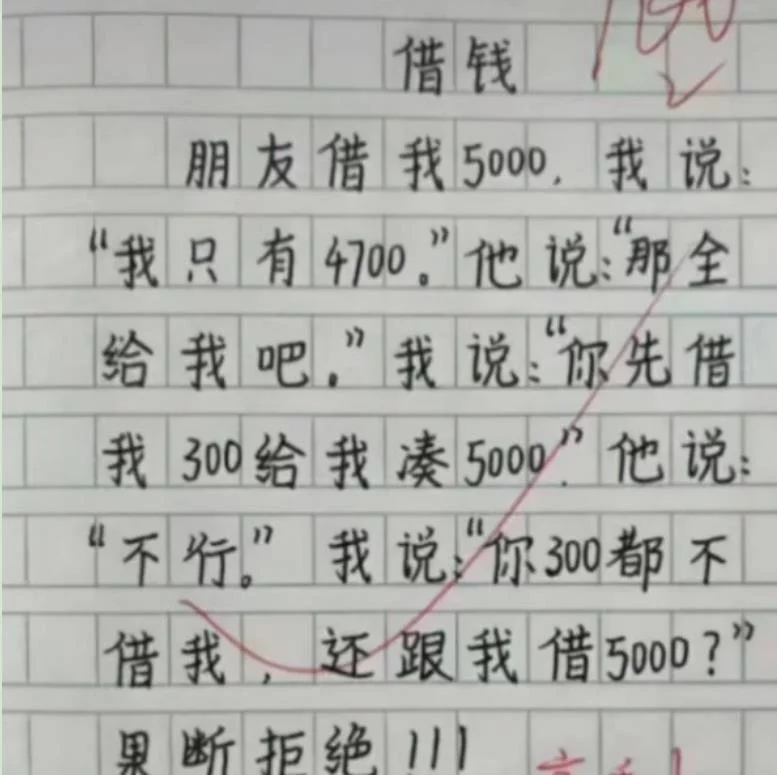 100
借钱
朋友借我5000, 我说:
“我只有4700。”他说:“那全
给我吧。”我说:“你先借
我300给我凑5000”。他说:
“不行。”我说:“你300都不
借我,还跟我借5000?”
果断拒绝!!!